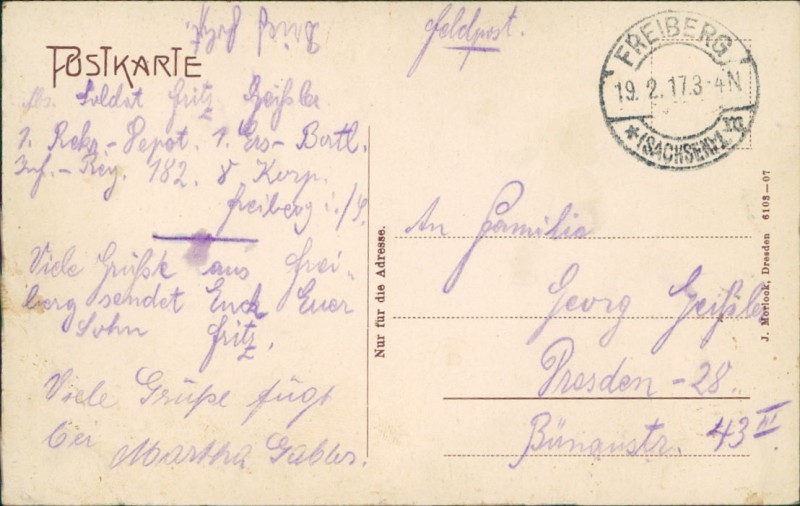 Feldpost.
POSTKARTE
FREIBERG
19. 2. 17. 3-4 N
*(SACHSEN)1.
Soldat Fritz Geißler
1. Rekr.-Depot. 1. Ers.- Batl.
Inf.-Reg. 182. 8 Korp.
Freiberg i./S.
Viele Grüße aus Frei-
berg sendet Euch Euer
Sohn Fritz.
Viele Grüße fügt
bei
Martha Gabler.
Nur für die Adresse.
An Familie
Georg Geißler
Dresden - 28.
43 III.
J. Morlock, Dresden 6108—07